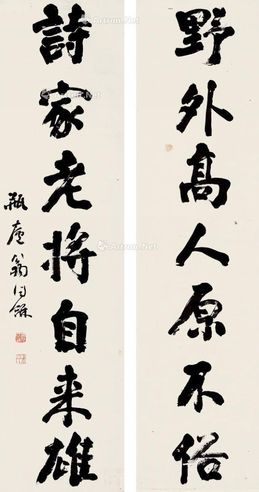 野外高人原不俗
詩家老將自来雄
瓶廬翁同龢